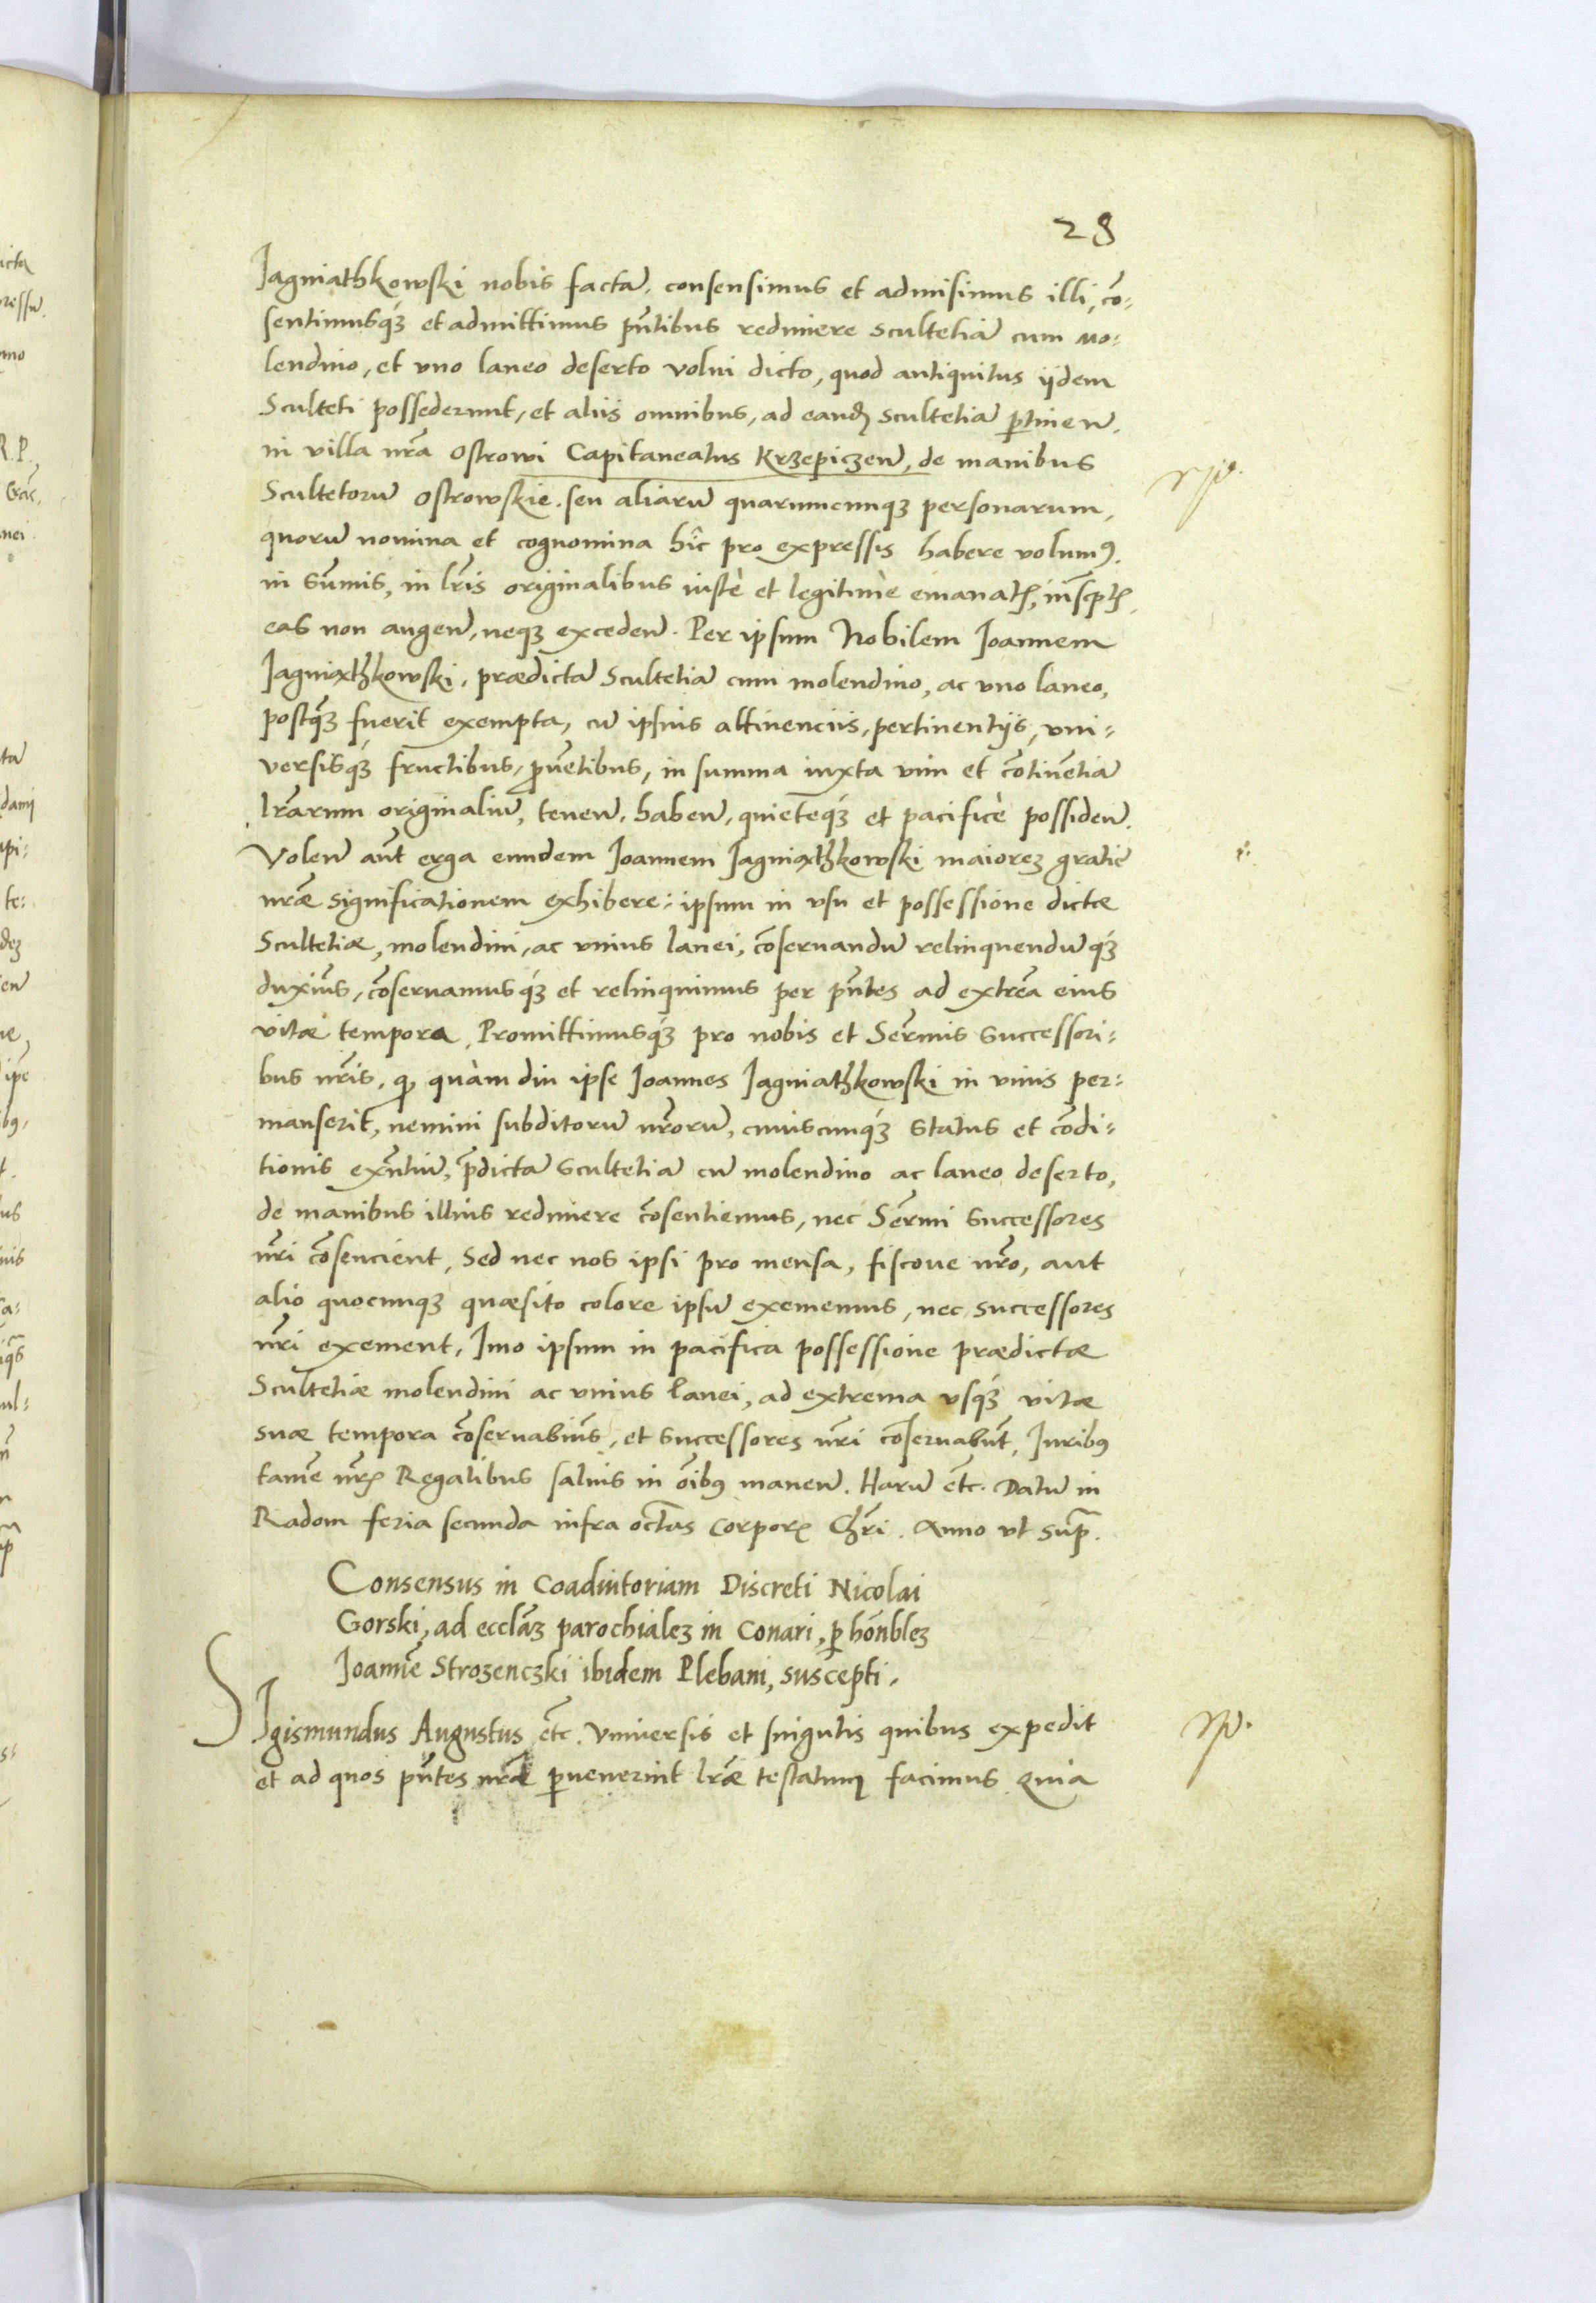 28
Jagniathkowski nobis factã. consensimus et admisimus illi, cõ-
sentimusq́ꝫ et admittimus pñtibus redimere scultetiã cum mo-
lendino, et vno laneo deserto volni dicto, quod antiquitus ijdem
Sculteti possederunt, et alijs omnibus, ad eandẽ scultetiã ꝑtineñ.
in villa nr̃a Ostrowi Capitaneatus Krzepiczeñ, de manibus
Scultetorũ Ostrowskie. seu aliarũ quarumcunqꝫ personarum,
quorũ nomina et cognomina hîc pro expressis habere volumꝰ.
in sũmis, in lr̃is originalibus iustè et legitimè emanatꝭ, inscꝑtꝭ,
eas non augeñ, neqꝫ excedeñ. Per ipsum Nobilem Joannem
Jagniathkowski, prædictã Scultetiã cum molendino, ac vno laneo,
postq̃ꝫ fuerit exempta, cũ ipsius attinencijs, pertinentijs, vni-
versisq́ꝫ fructibus, ꝓuẽtibus, in summa iuxta vim et cõtinẽtiã
lr̃arum originaliũ, teneñ. habeñ, quietèq́ꝫ et pacificè possideñ.
Voleñ aũt erga eundem Joannem Jagniathkowski maiorẽ gratiẽ
nr̃æ significationem exhibere, ipsum in vsu et possessione dictæ
Scultetiæ, molendini, ac vnius lanei, cõseruandũ relinquendũq́ꝫ
duxim̃s, cõseruamusq́ꝫ et relinquimus per pñtes ad extrẽa eius
vitæ tempora, Promittimusq́ꝫ pro nobis et Serm̃is Successori-
bus nr̃is, ꝙ quàm diu ipse Joannes Jagniathkowski in viuis per-
manserit, nemini subditorũ nr̃orũ, cuiuscunq́ꝫ status et cõdi-
tionis exñtiũ, p̃dictã scultetiã cũ molendino ac laneo deserto,
de manibus illius redimere cõsentiemus, nec Serm̃i Successores
nr̃i cõsencient, sed nec nos ipsi pro mensa, fiscoue nr̃o, aut
alio quocunqꝫ quæsito colore ipsũ exememus, nec successores
nr̃i exement, Jmo ipsum in pacifica possessione prædictæ
Scultetiæ molendini ac vnius lanei, ad extrema vsq́ꝫ vitæ
suæ tempora cõseruabim̃s, et successores nr̃i cõseruabũt, Juribꝰ
tamẽ nr̃ꝭ Regalibus saluis in õibꝰ maneñ. Harũ etc̃. Datũ in
Radom feria secunda infra octãs Corporꝭ Chr̃i. Anno vt sup̃.
Consensus in Coadiutoriam Discreti Nicolai
Gorski, ad eccl̃aꝫ parochialeꝫ in Conari, ꝑ hoñbleꝫ
Joannẽ Strozenczki ibidem Plebani, suscepti.
SJgismundus Augustus etc̃. Vniuersis et singulis quibus expedit
et ad quos pñtes nr̃æ ꝑuenerint lr̃æ testatumꝫ facimus Quia